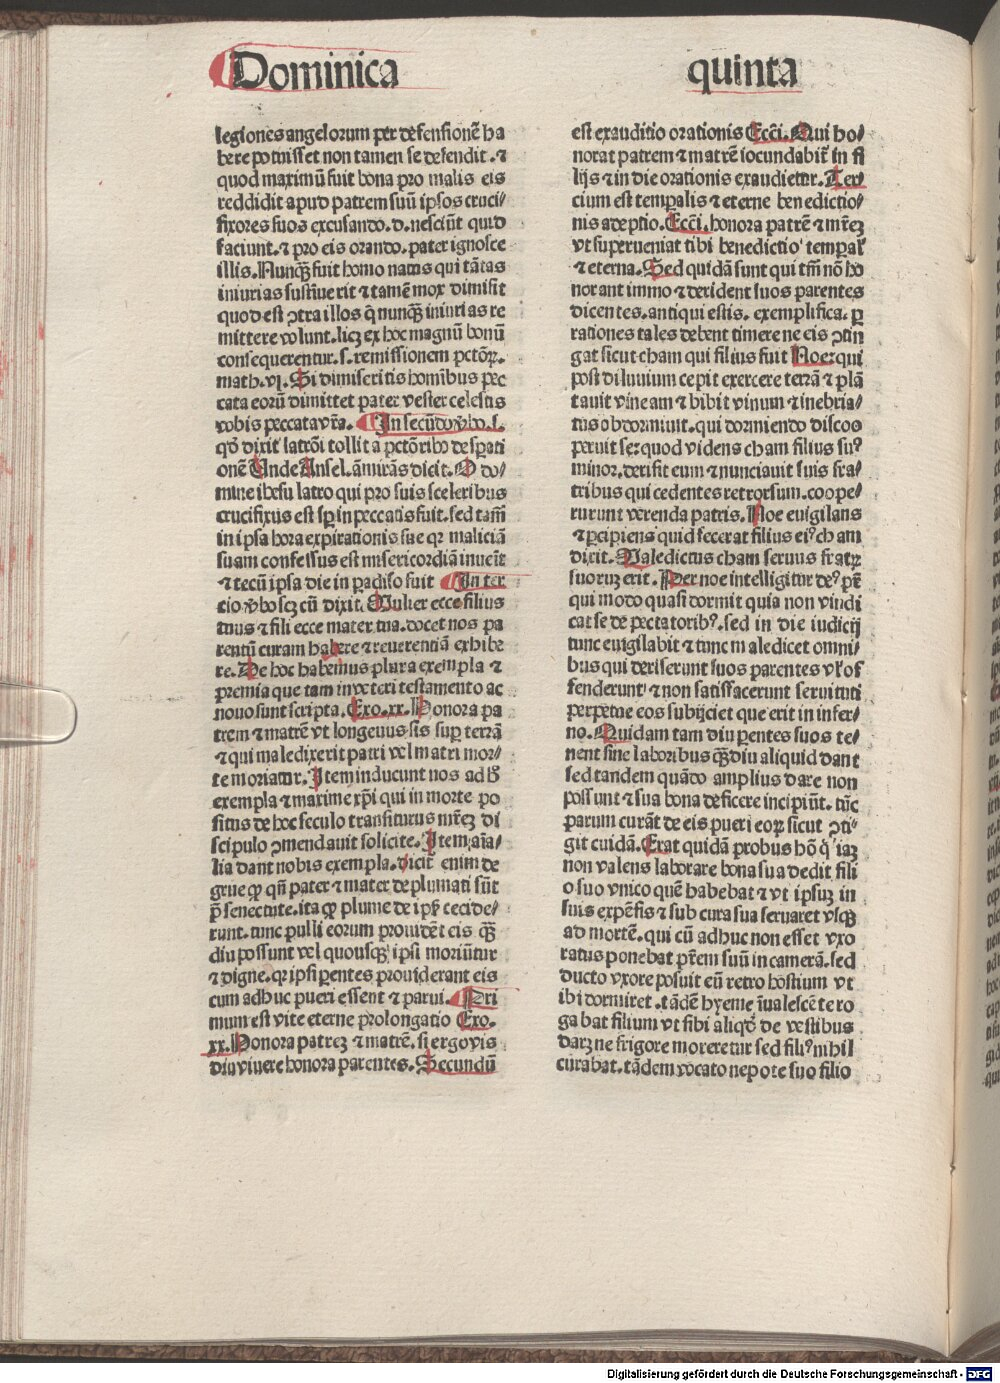 Dominica quinta
legiones angelorum per defensionē ha
bere potuisset non tamen se defendit . ⁊
quod maximū fuit bona pro malis eis
reddidit apud patrem suū ipsos cruci/
fixores suos excusando. d. nesciūt quid
faciunt. ⁊ pro eis orando. pater ignosce
illis. Nunqꝫ fuit homo natus qui tātas
iniurias sustinuerit ⁊ tamē mox dimisit
quod est ꝯtra illos q̄ nunqꝫ iniurias re
mittere volunt. licꝫ ex hoc magnū bonū
consequerentur. s. remissionem pctōꝝ.
math. vi. Si dimiseritis hominibus pec
cata eorū dimittet pater vester celestis
vobis peccata vr̄a. In secūdo v̄bo. s.
qd̄ dixit latrōi tollit a pctōribo desperati
onē Unde Ansel. āmirās dicit. O do/
mine ihesu latro qui pro suis sceleribus
crucifixus est sp̄ in peccatis fuit. sed tam̄
in ipsa hora expirationis sue qꝛ maliciā
suam confessus est misericordiā inuenit
⁊ tecū ipsa die in ꝑadiso fuit In ter
cio v̄bo scꝫ cū dixit. Mulier ecce filius
tuus ⁊ fili ecce mater tua. docet nos pa
rentū curam habere ⁊ reuerentiā exhibe
re. De hoc habemus plura exempla ⁊
premia que tam in veteri testamento ac
nouo sunt scripta. Exo. xx. Honora pa
trem ⁊ matrē vt longeuus sis suꝑ terrā
⁊ qui maledixerit patri vel matri mor/
te moriatur. Item inducunt nos ad h̄
exempla ⁊ maxime xp̄i qui in morte po
situs de hoc seculo transiturus mr̄eꝫ di
scipulo ꝯmendauit solicite. Item aīa/
lia dant nobis exempla. dicit enim de
grue ꝙ qn̄ pater ⁊ mater deplumati sūt
p̄ senectute. ita ꝙ plume de ipẜ cecide/
runt. tunc pulli eorum prouidēt eis qꝫ
diu possunt vel quousqꝫ ipsi moriūtur
⁊ digne. qꝛ ipsi ꝑentes prouiderant eis
cum adhuc pueri essent ⁊ parui. Pri
mum est vite eterne prolongatio Exo.
xx. Honora patreꝫ ⁊ matrē. si ergo vis
diu viuere honora parentes. Secundū
est exauditio orationis Ecc̄i. Qui ho/
norat patrem ⁊ matrē iocundabit̄ in fi
lijs ⁊ in die orationis exaudietur. Ter/
cium est temꝑalis ⁊ eterne benedictio/
nis adeptio. Ecc̄i. honora patrē ⁊ mr̄eꝫ
vt superueniat tibi benedictio temꝑaƚ
⁊ eterna. Sed quidā sunt qui tm̄ nō ho
norant immo ⁊ derident suos parentes
dicentes. antiqui estis. exemplifica. ꝑ
rationes tales debent timere ne eis ꝯtin
gat sicut cham qui filius fuit Noe: qui
post diluuium cepit exercere terrā ⁊ plā
tauit vineam ⁊ bibit vinum ⁊ inebria/
tus obdormiuit. qui dormiendo discoo
peruit se: quod videns cham filius suꝰ
minor. derisit eum ⁊ nunciauit suis fra/
tribus qui cedentes retrorsum. coope/
rurunt verenda patris. Noe euigilans
⁊ ꝑcipiens quid fecerat filius eiꝰ cham
dixit. Maledictus cham seruus fratꝝ
suoruꝫ erit. Per noe intelligitur deꝰ pr̄
qui modo quasi dormit quia non vindi
cat se de peccatoribꝰ. sed in die iudicij
tunc euigilabit ⁊ tunc maledicet omni/
bus qui deriserunt suos parentes vl' of
fenderunt ⁊ non satisfacerunt seruituti
perpetue eos subijciet que erit in infer/
no. Quidam tam diu ꝑentes suos te/
nent sine laboribus qꝫdiu aliquid dant
sed tandem quādo amplius dare non
possunt ⁊ sua bona deficere incipiūt. tūc
parum curāt de eis pueri eoꝝ sicut ꝯti/
git cuidā. Erat quidā probus hō q̄ iaꝫ
non valens laborare bona sua dedit fili
o suo vnico quē habebat ⁊ vt ipsuꝫ in
suis expēsis ⁊ sub cura sua seruaret vsqꝫ
ad mortē. qui cū adhuc non esset vxo
ratus ponebat pr̄em suū in camerā. sed
ducto vxore posuit eū retro hostium vt
ibi dormiret. tādē hyeme īualescēte ro
gabat filium vt sibi aliqd̄ de vestibus
darꝫ ne frigore moreretur sed filiꝰ nihil
curabat. tādem vocato nepote suo filio
Digitalisierung gefördert durch die Deutsche Forschungsgemeinschaft - DFG